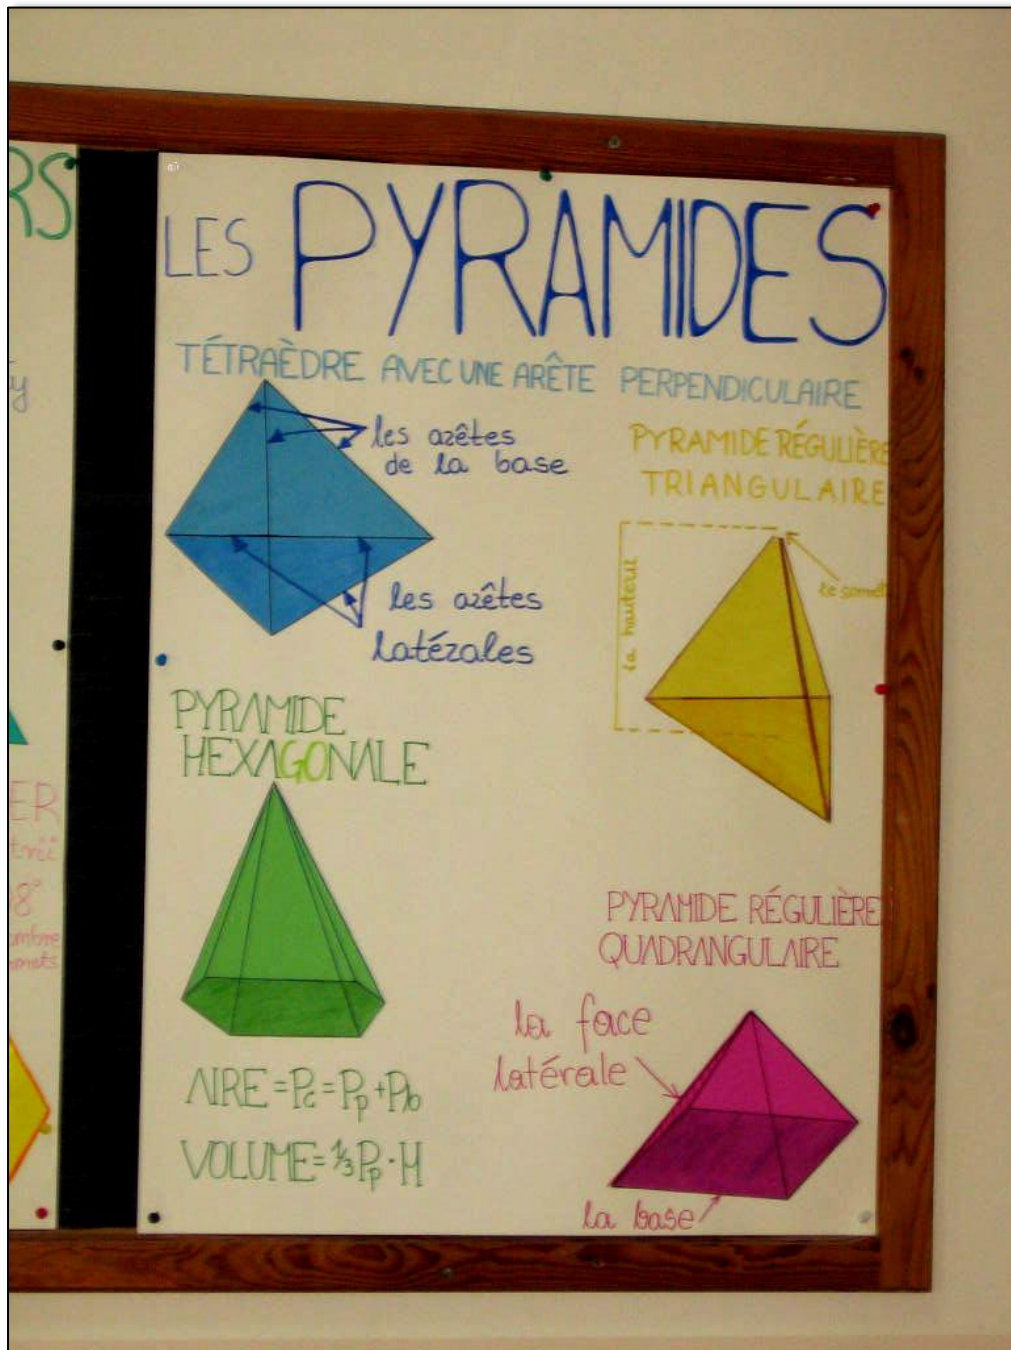 RS
LES PYRAMIDES
TÉTRAÈDRE AVEC UNE ARÊTE PERPENDICULAIRE
les arêtes
de la base
les arêtes
latérales
PYRAMIDE RÉGULIÈRE
TRIANGULAIRE
la hauteur
le somet
PYRAMIDE
HEXAGONALE
AIRE = Pc = Pp + Pb
VOLUME = 1/3 Pp · H
PYRAMIDE RÉGULIÈRE
QUADRANGULAIRE
la face
latérale
la base
ER
8°